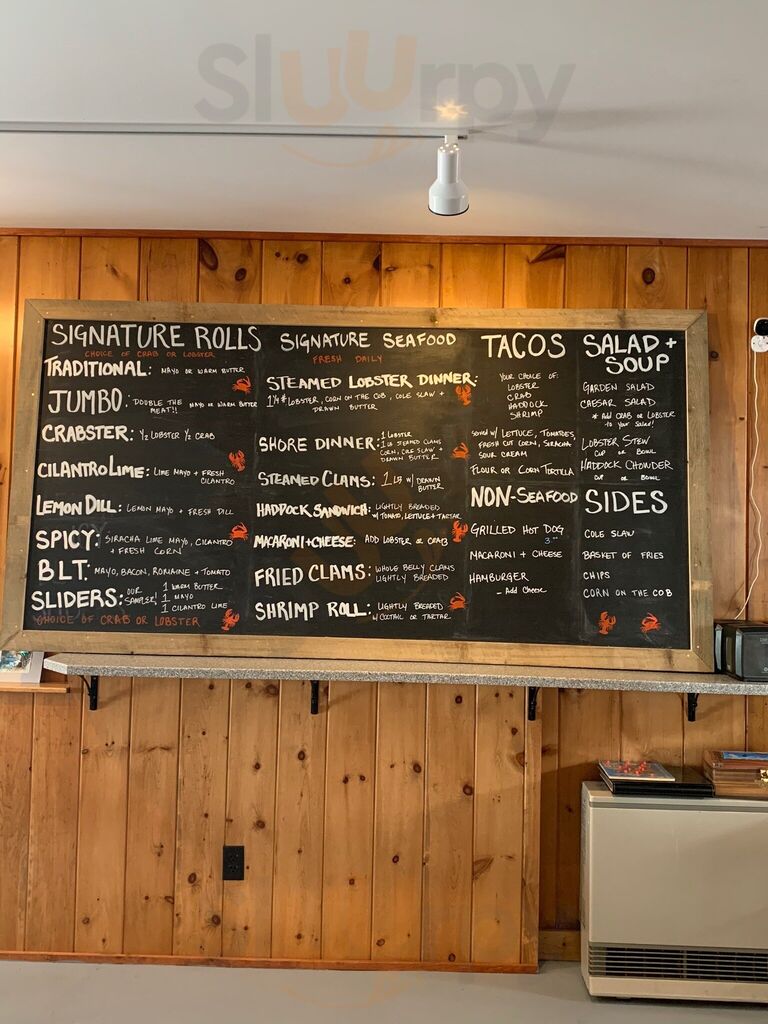 Sluurpy
SIGNATURE ROLLS
CHOICE OF CRAB OR LOBSTER
TRADITIONAL: MAYO OR WARM BUTTER
JUMBO: "DOUBLE THE MEAT!!" MAYO OR WARM BUTTER
CRABSTER: 1/2 LOBSTER 1/2 CRAB
CILANTRO LIME: LIME MAYO + FRESH
CILANTRO
LEMON DILL: LEMON MAYO + FRESH DILL
SPICY: SIRACHA LIME MAYO, CILANTRO
+ FRESH CORN
BLT: MAYO, BACON, ROMAINE + TOMATO
SLIDERS: OUR SAMPLER! 1 WARM BUTTER
1 MAYO
1 CILANTRO LIME
CHOICE OF CRAB OR LOBSTER
SIGNATURE SEAFOOD
FRESH DAILY
STEAMED LOBSTER DINNER:
1 1/4 # LOBSTER, CORN ON THE COB, COLE SLAW +
DRAWN BUTTER
SHORE DINNER: 1 LOBSTER
1 LB STEAMED CLAMS
CORN, COLE SLAW +
DRAWN BUTTER
STEAMED CLAMS: 1 LB W/ DRAWN
BUTTER
HADDOCK SANDWICH: LIGHTLY BREADED
W/ TOMATO, LETTUCE + TARTAR
MACARONI + CHEESE: ADD LOBSTER OR CRAB
FRIED CLAMS: WHOLE BELLY CLAMS
LIGHTLY BREADED
SHRIMP ROLL: LIGHTLY BREADED
W/ COCKTAIL OR TARTAR
TACOS
YOUR CHOICE OF:
LOBSTER
CRAB
HADDOCK
SHRIMP
SERVED W/ LETTUCE, TOMATOES,
FRESH CUT CORN, SIRACHA
SOUR CREAM
FLOUR OR CORN TORTILLA
NON-SEAFOOD
GRILLED HOT DOG
3
MACARONI + CHEESE
HAMBURGER
- ADD CHEESE
SALAD +
SOUP
GARDEN SALAD
CAESAR SALAD
* ADD CRAB OR LOBSTER
TO YOUR SALAD!
LOBSTER STEW
CUP OR BOWL
HADDOCK CHOWDER
CUP OR BOWL
SIDES
COLE SLAW
BASKET OF FRIES
CHIPS
CORN ON THE COB